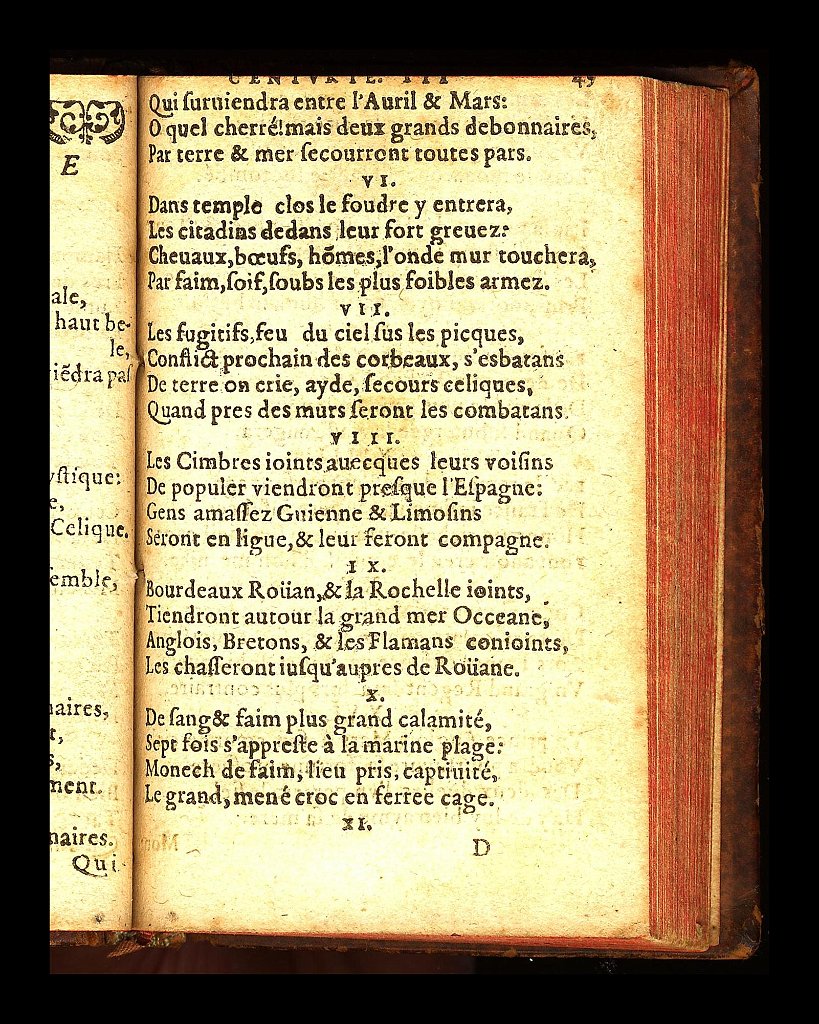 E
ale,
haut be-
le,
iẽdra pas
ystique:
e,
Celique.
emble,
naires,
t,
s,
ment.
naires.
Qui
CENTVRIE. III 49
Qui suruiendra entre l'Auril & Mars:
O quel cherré!mais deux grands debonnaires,
Par terre & mer secourront toutes pars.
VI.
Dans temple clos le foudre y entrera,
Les citadins dedans leur fort greuez:
Cheuaux,bœufs, hõmes,l'onde mur touchera,
Par faim,soif,soubs les plus foibles armez.
VII.
Les fugitifs,feu du ciel sus les picques,
Conflict prochain des corbeaux, s'esbatans
De terre on crie, ayde, secours celiques,
Quand pres des murs seront les combatans.
VIII.
Les Cimbres ioints auecques leurs voisins
De populer viendront presque l'Espagne:
Gens amassez Guienne & Limosins
Seront en ligue,& leur feront compagne.
IX.
Bourdeaux Roüan,& la Rochelle ioints,
Tiendront autour la grand mer Occeane,
Anglois, Bretons, & les Flamans conioints,
Les chasseront iusqu'aupres de Roüane.
X.
De sang& faim plus grand calamité,
Sept fois s'appreste à la marine plage:
Monech de faim, lieu pris, captiuité,
Le grand, mené croc en ferree cage.
XI.
D